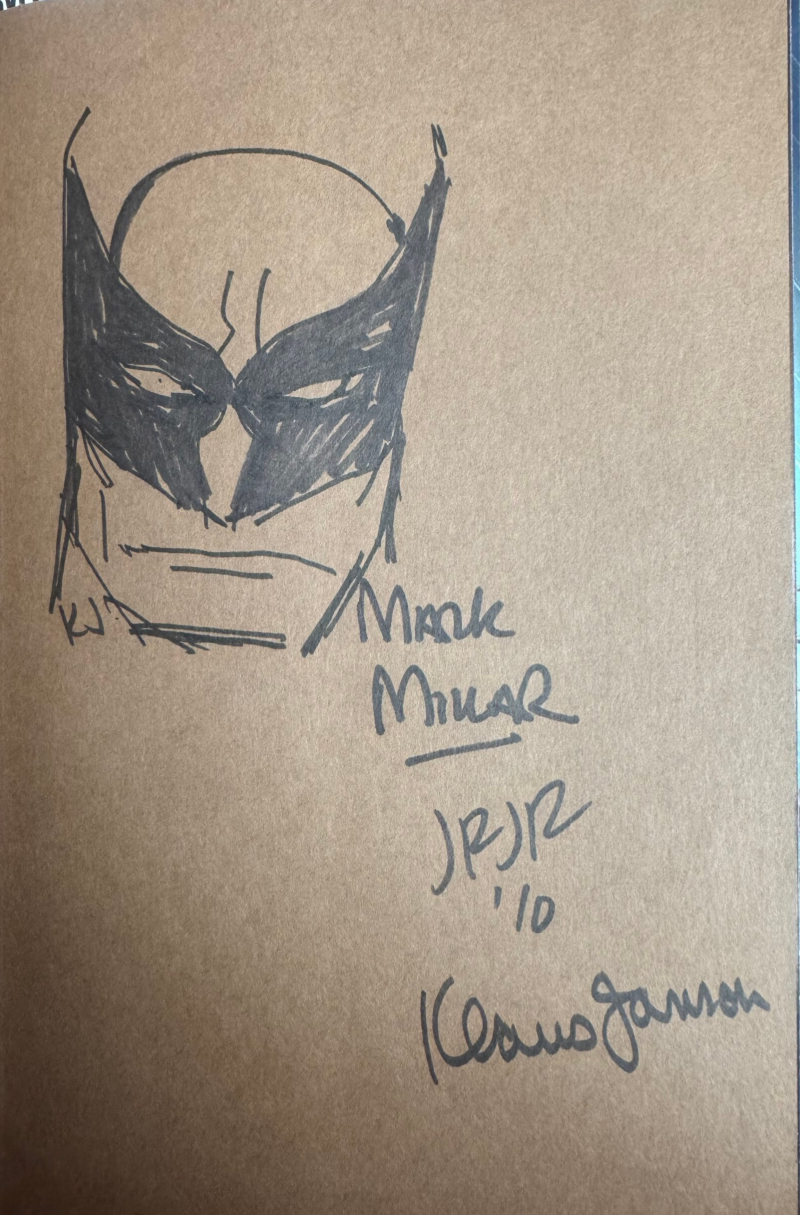 KJ
MARK
MILLAR
JRJR
'10
Klaus Janson